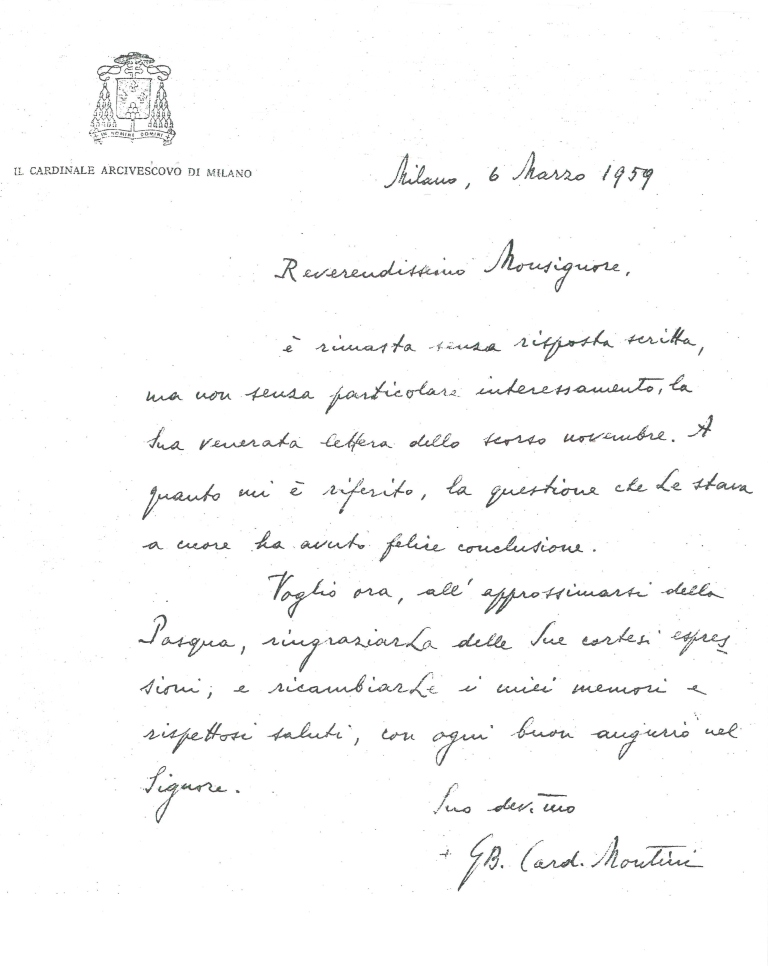 IN NOMINE DOMINI
IL CARDINALE ARCIVESCOVO DI MILANO
Milano, 6 Marzo 1959
Reverendissimo Monsignore,
è rimasta senza risposta scritta,
ma non senza particolare interessamento, la
Sua venerata lettera dello scorso novembre. A
quanto mi è riferito, la questione che Le stava
a cuore ha avuto felice conclusione.
Voglio ora, all'approssimarsi della
Pasqua, ringraziarLa delle Sue cortesi espres
sioni, e ricambiarLe i miei memori e
rispettosi saluti, con ogni buon augurio nel
Signore.
Suo dev.mo
+ GB. Card. Montini